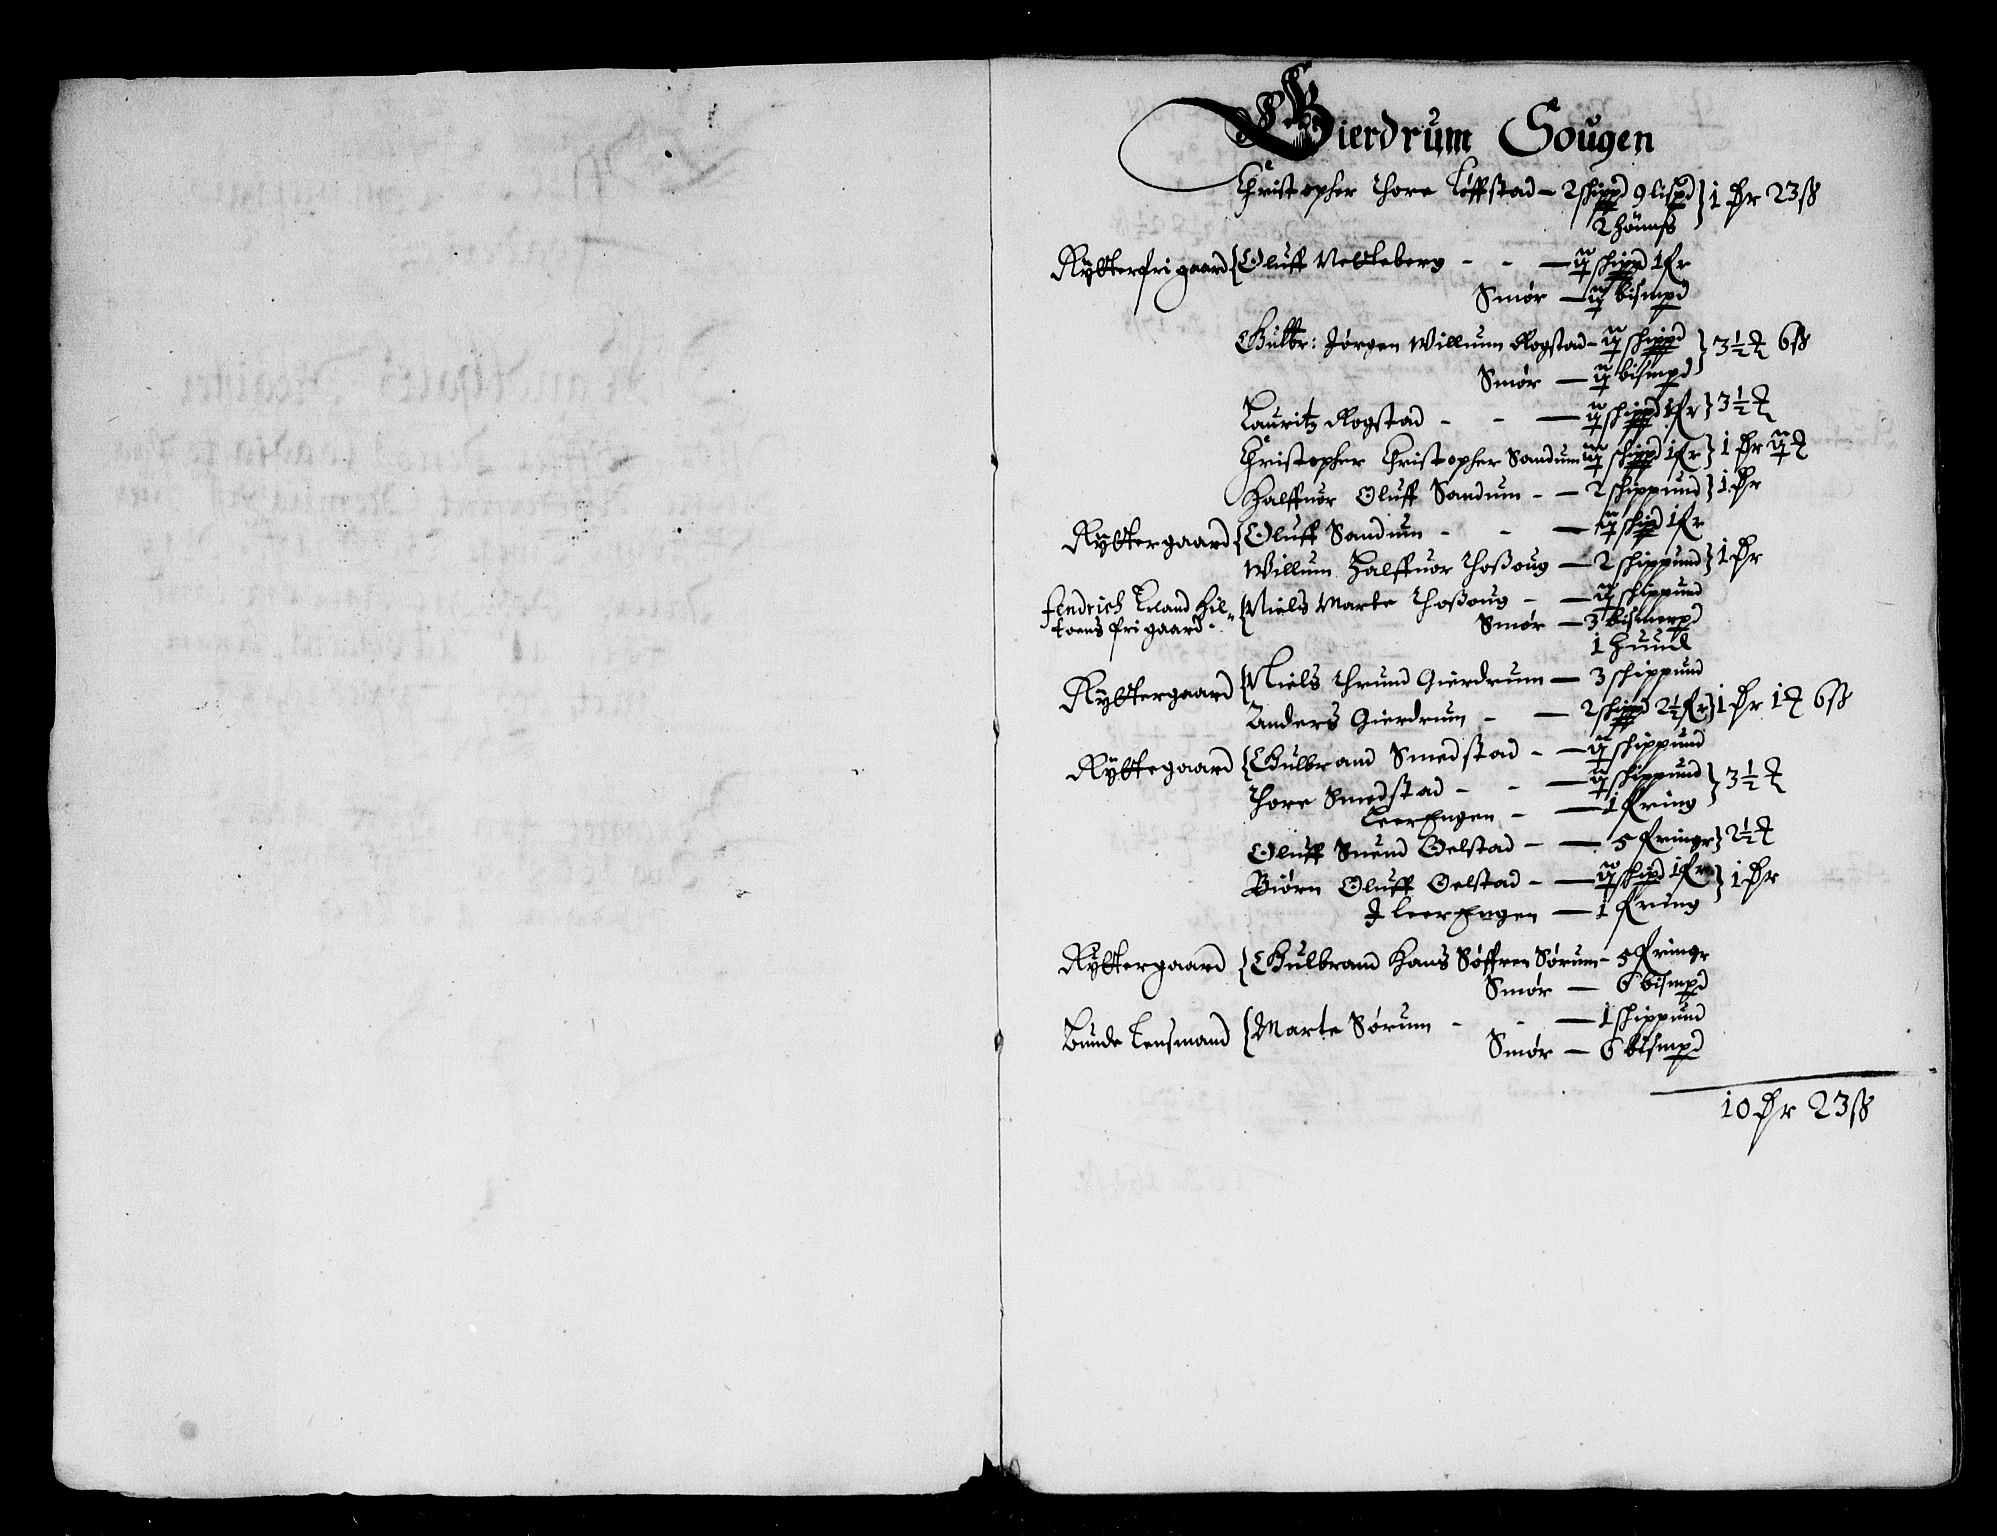 Gierdrum Sougen
Christopher Thore Løffstad — 2 schippd 9 lispd } 1 Dr 23 ß
2 hönnß
Rytterfrigaard { Oluff Netteberg - - — schippd 1 fr
Smør — bismpd
Gulbr: Jørgen Willum Rogstad - schippd } 3½ 6 ß
Smør — bismpd
Lauritz Rogstad - - — schippd 1 fr } 3½
Christopher Christopher Sandum schippd 1 fr } 1 Dr
Halffuor Oluff Sandum - — 2 schippund } 1 Dr
Ryttergaard { Oluff Sandum - - — schipd 1 fr
Willum Halffuor Thoßoug — 2 schippund } 1 Dr
fendrich Erland Hil-
toens frigaard { Niels Marte Thoßoug - — schippund
Smør — 3 bismerpd
1 Huud
Ryttergaard { Niels Thrund Gierdrum — 3 schippund
Anders Gierdrum - — 2 schippd 2½ fr } 1 Dr 1 6 ß
Ryttegaard { Gulbrand Smedstad - — schippund
Thore Smedstad - - — schippund } 3½
Leer Engen - — 1 fring
Oluff Suend Oelstad - — 5 fringr } 2½
Biørn Oluff Oelstad - — schipd 1 fr } 1 Dr
J Leer Engen — 1 frring
Ryttergaard { Gulbrand Hans Søffren Sørum - 5 fringr
Smør — 6 bismpd
Bunde Lensmand { Marte Sørum - - — 1 schippund
Smør — 6 bismpd
10 Dr 23 ß